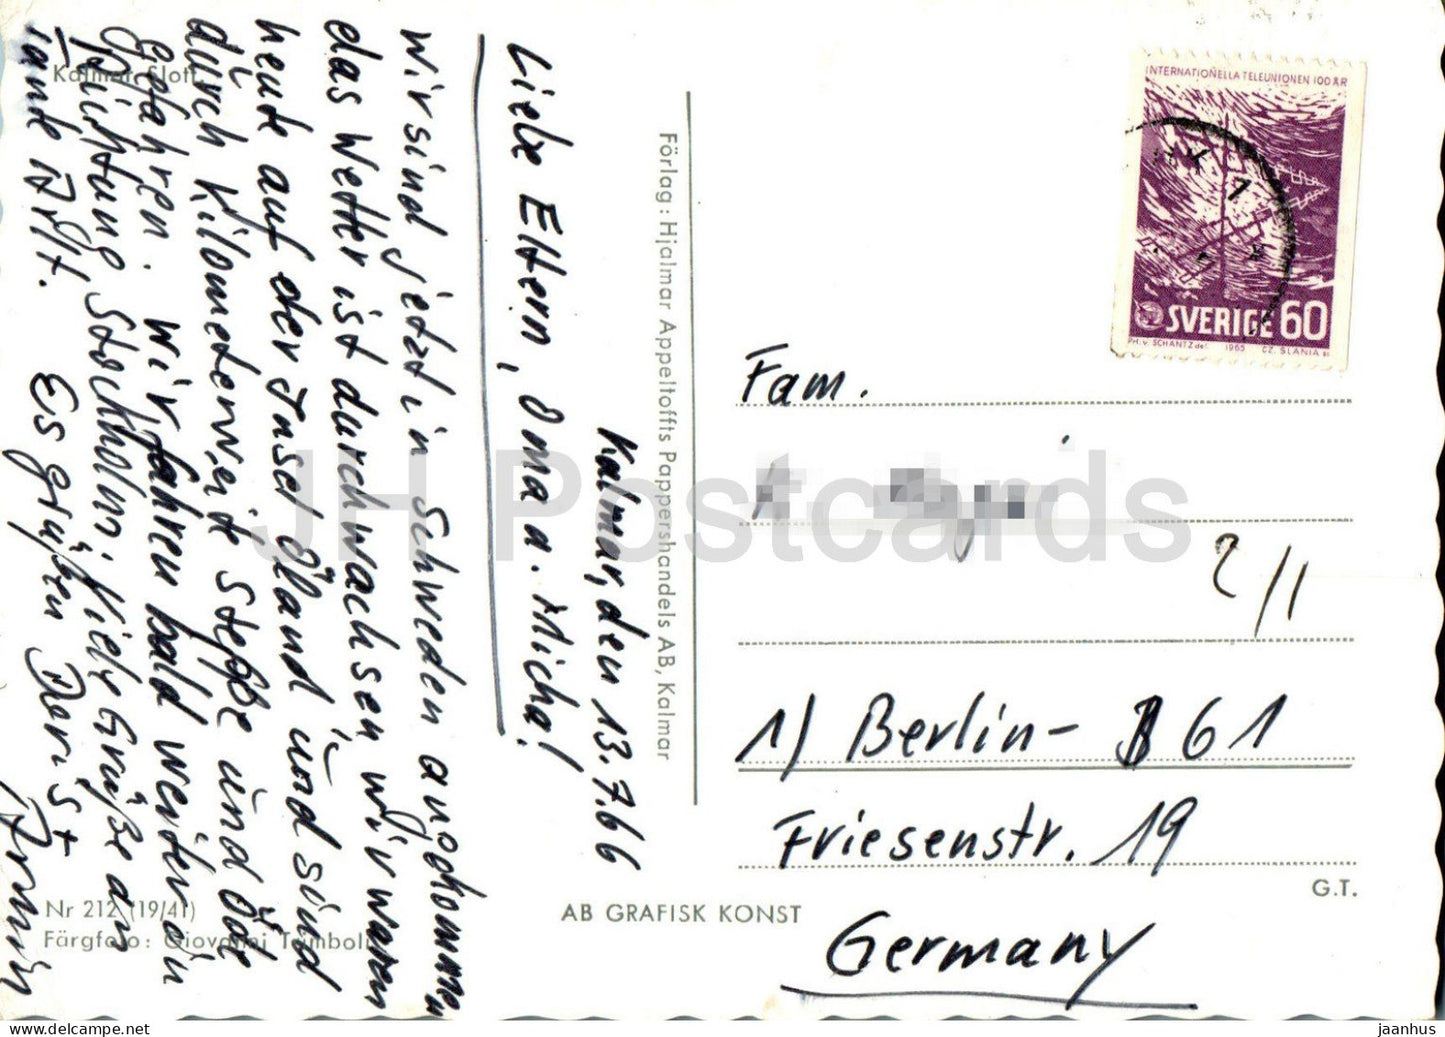 Kalmar Slott.
Kalmar, den 13.7.66
Liebe Eltern, Oma u. Micha!
wir sind jetzt in Schweden angekommen
das Wetter ist durchwachsen, wir waren
heute auf der Insel Öland und sind
durch kilometerweite Steppe und Öde
gefahren. Wir fahren bald weiter in
Richtung Stockholm; Viele Grüße an
Tante
Es grüßen Doris +
Armin
Nr 212 (19/41)
Färgfoto: Giovanni Trimboli
Förlag: Hjalmar Appeltoffts Pappershandels AB, Kalmar
AB GRAFISK KONST
INTERNATIONELLA TELEUNIONEN 100 ÅR
SVERIGE 60
PH. v. SCHANTZ del. 1965 CZ. SLANIA sc.
Fam.
2/1
1) Berlin - 61
Friesenstr. 19
G.T.
Germany
JH Postcards
delcampe.net
jaanhus